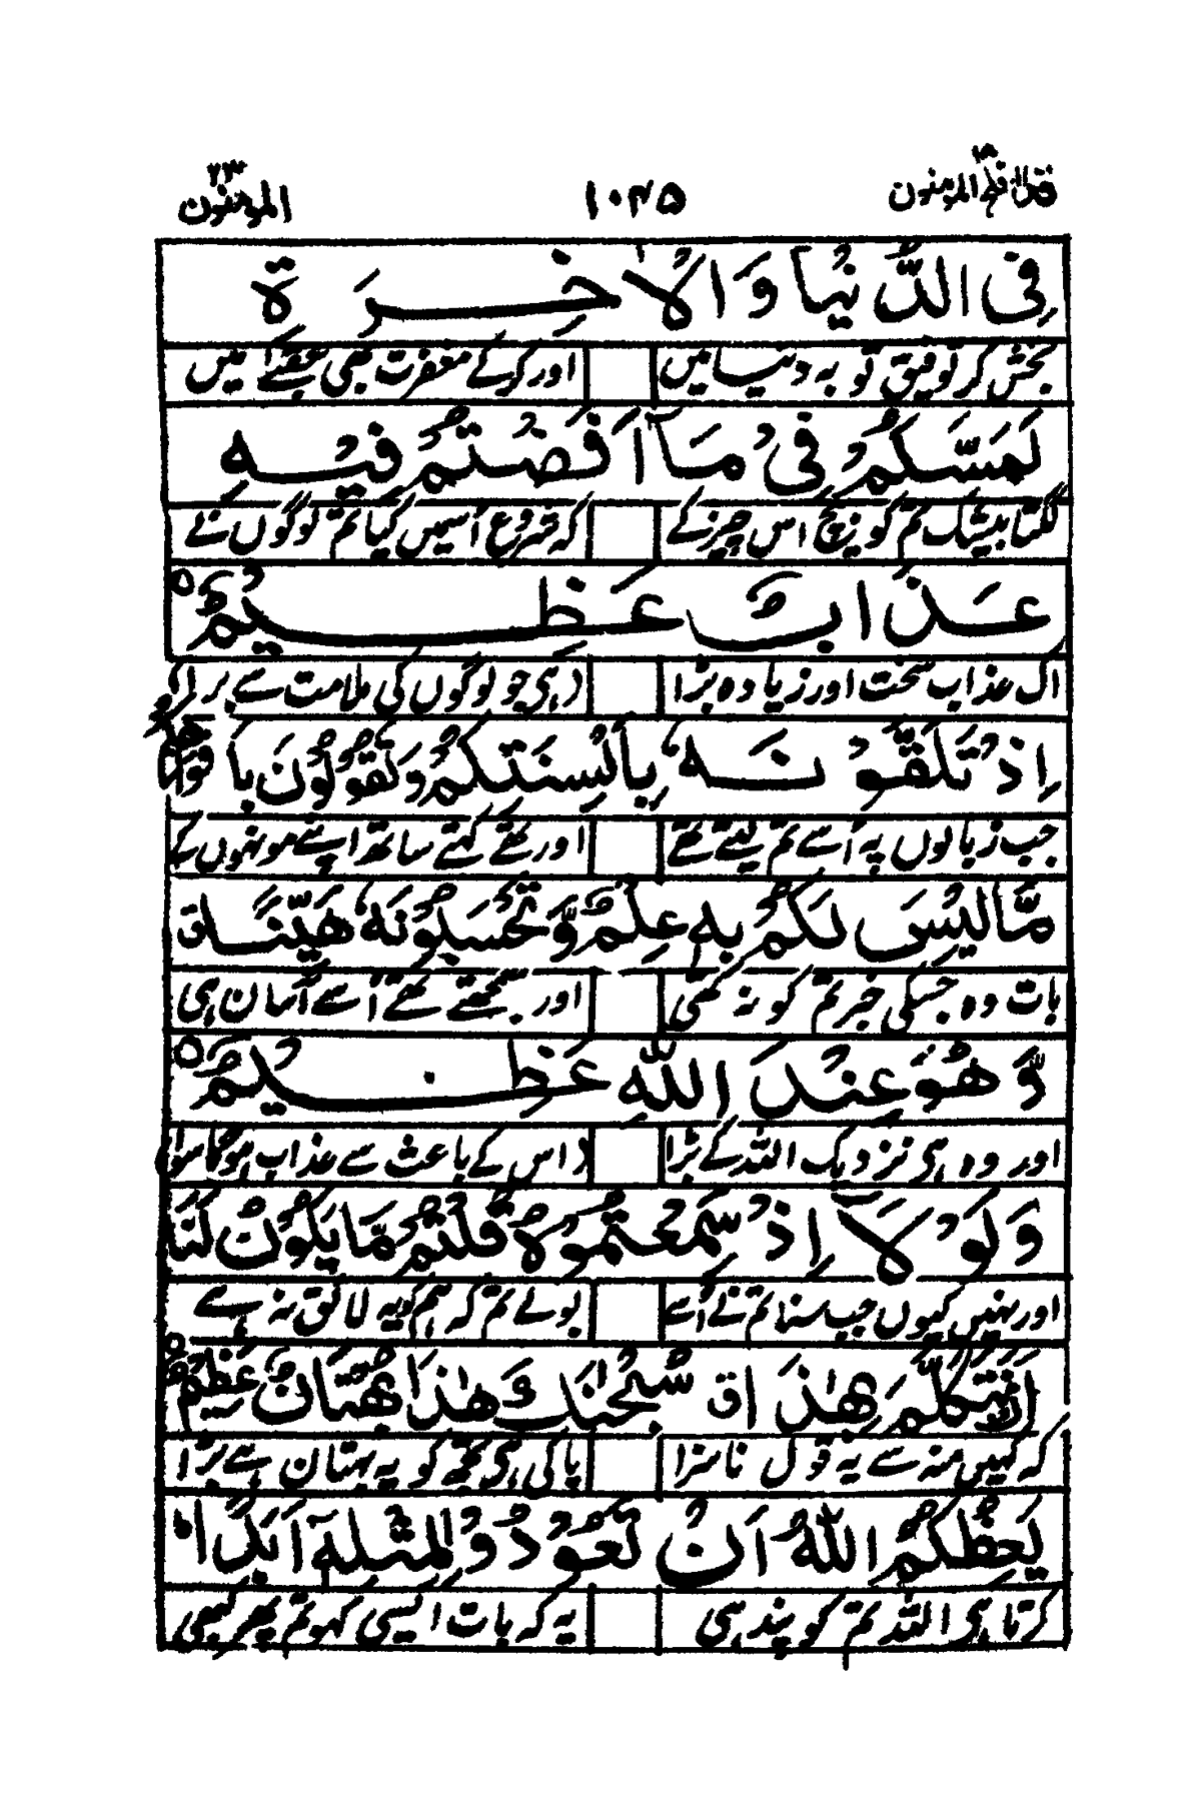 قد افلح المؤمنون ۱۸ ۱۰۴۵ المؤمنون ۲۳
فِی الدُّنْیَا وَالْاٰخِرَةِ
بخش کر توفیق تو یہ دنیا میں اور کرکے مغفرت بھی عقبےٰ میں
لَمَسَّكُمْ فِیْ مَاۤ اَفَضْتُمْ فِیْهِ
لگتا بیشک تم کو بیچ اس چیز کے کہ شروع اُسمیں کیا تم لوگوں نے
عَذَابٌ عَظِیْمٌ ○
اک عذاب سخت اور زیادہ بڑا (ہی جو لوگوں کی ملامت سے برا)
اِذْ تَلَقَّوْنَهٗ بِاَلْسِنَتِكُمْ وَتَقُوْلُوْنَ بِاَفْوَاهِكُمْ
جب زبانوں پہ اُسے تم لیتے تھے اور تھے کہتے ساتھ اپنے مونہوں کے
مَّا لَیْسَ لَكُمْ بِهٖ عِلْمٌ وَّتَحْسَبُوْنَهٗ هَیِّنًا ۖق
بات وہ جسکی خبر تم کو نہ تھی اور سمجھتے تھے اُسے آسان ہی
وَّهُوَ عِنْدَ اللّٰهِ عَظِیْمٌ ○
اور وہ ہی نزدیک اللہ کے بڑا (اس کے باعث سے عذاب ہوگا سوا)
وَلَوْلَاۤ اِذْ سَمِعْتُمُوْهُ قُلْتُمْ مَّا یَكُوْنُ لَنَاۤ
اور نہیں کیوں جب سنا تم نے اُسے بولے تم کہ ہم کو یہ لائق نہ ہے
اَنْ نَّتَكَلَّمَ بِهٰذَا ۖق سُبْحٰنَكَ هٰذَا بُهْتَانٌ عَظِیْمٌ ○
کہ کہیں منہ سے یہ قول ناسزا پاکی ہی تجھ کو یہ بہتان ہے بڑا
یَعِظُكُمُ اللّٰهُ اَنْ تَعُوْدُوْا لِمِثْلِهٖۤ اَبَدًا
کرتا ہی اللہ تم کو پند ہی یہ کہ بات ایسی کہو تم پھر کبھی